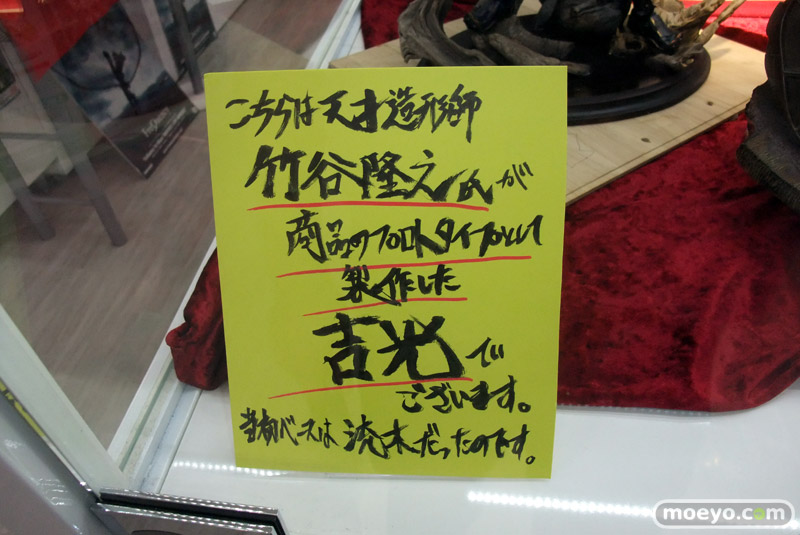 こちらは天才造形師
竹谷隆之氏が
商品のプロトタイプとして
製作した
吉光で
ございます。
当初ベースは流木だったのです。
moeyo.com